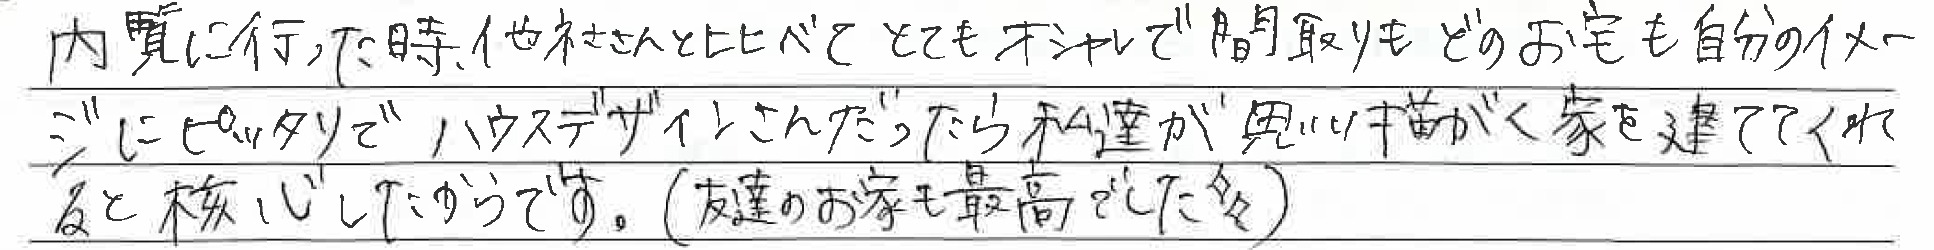 内覧に行った時、他社さんと比べてとてもオシャレで間取りもどのお宅も自分のイメー
ジにピッタリでハウスデザインさんだったら私達が思い描がく家を建ててくれ
ると核心したからです。(友達のお家も最高でした